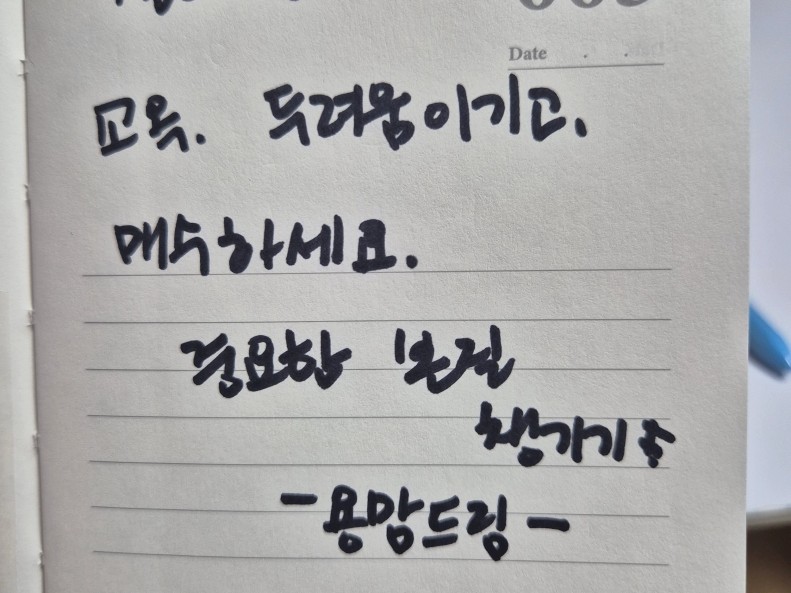 Date . .
교육. 두려움이기고.
매수하세요.
중요한 본질
챙기기
-용망드림-